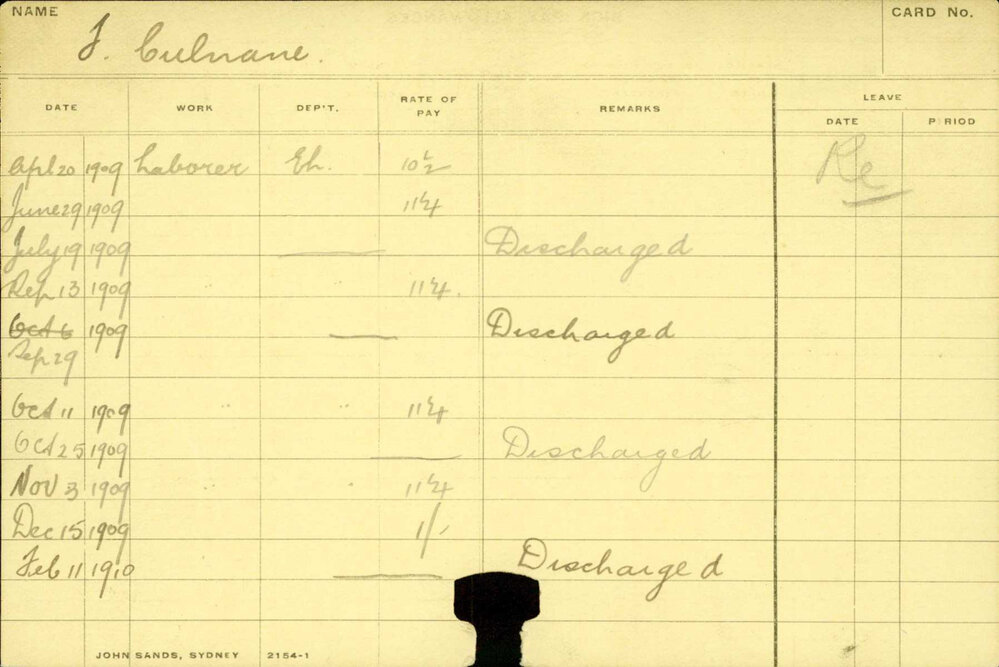 NAME
CARD No.
J. Culnane.
DATE WORK DEP'T. RATE OF PAY REMARKS LEAVE
DATE PERIOD
Apl 20 1909 Laborer Eh. 10½ Re
June 29 1909 11¼
July 19 1909 —— Discharged
Sep 13 1909 11¼.
Oct 6 1909 —— Discharged
Sep 29
Oct 11 1909 " " 11¼
Oct 25 1909 —— Discharged
Nov 3 1909 " " 11¼
Dec 15 1909 1/-
Feb 11 1910 —— Discharged
JOHN SANDS, SYDNEY 2154-1